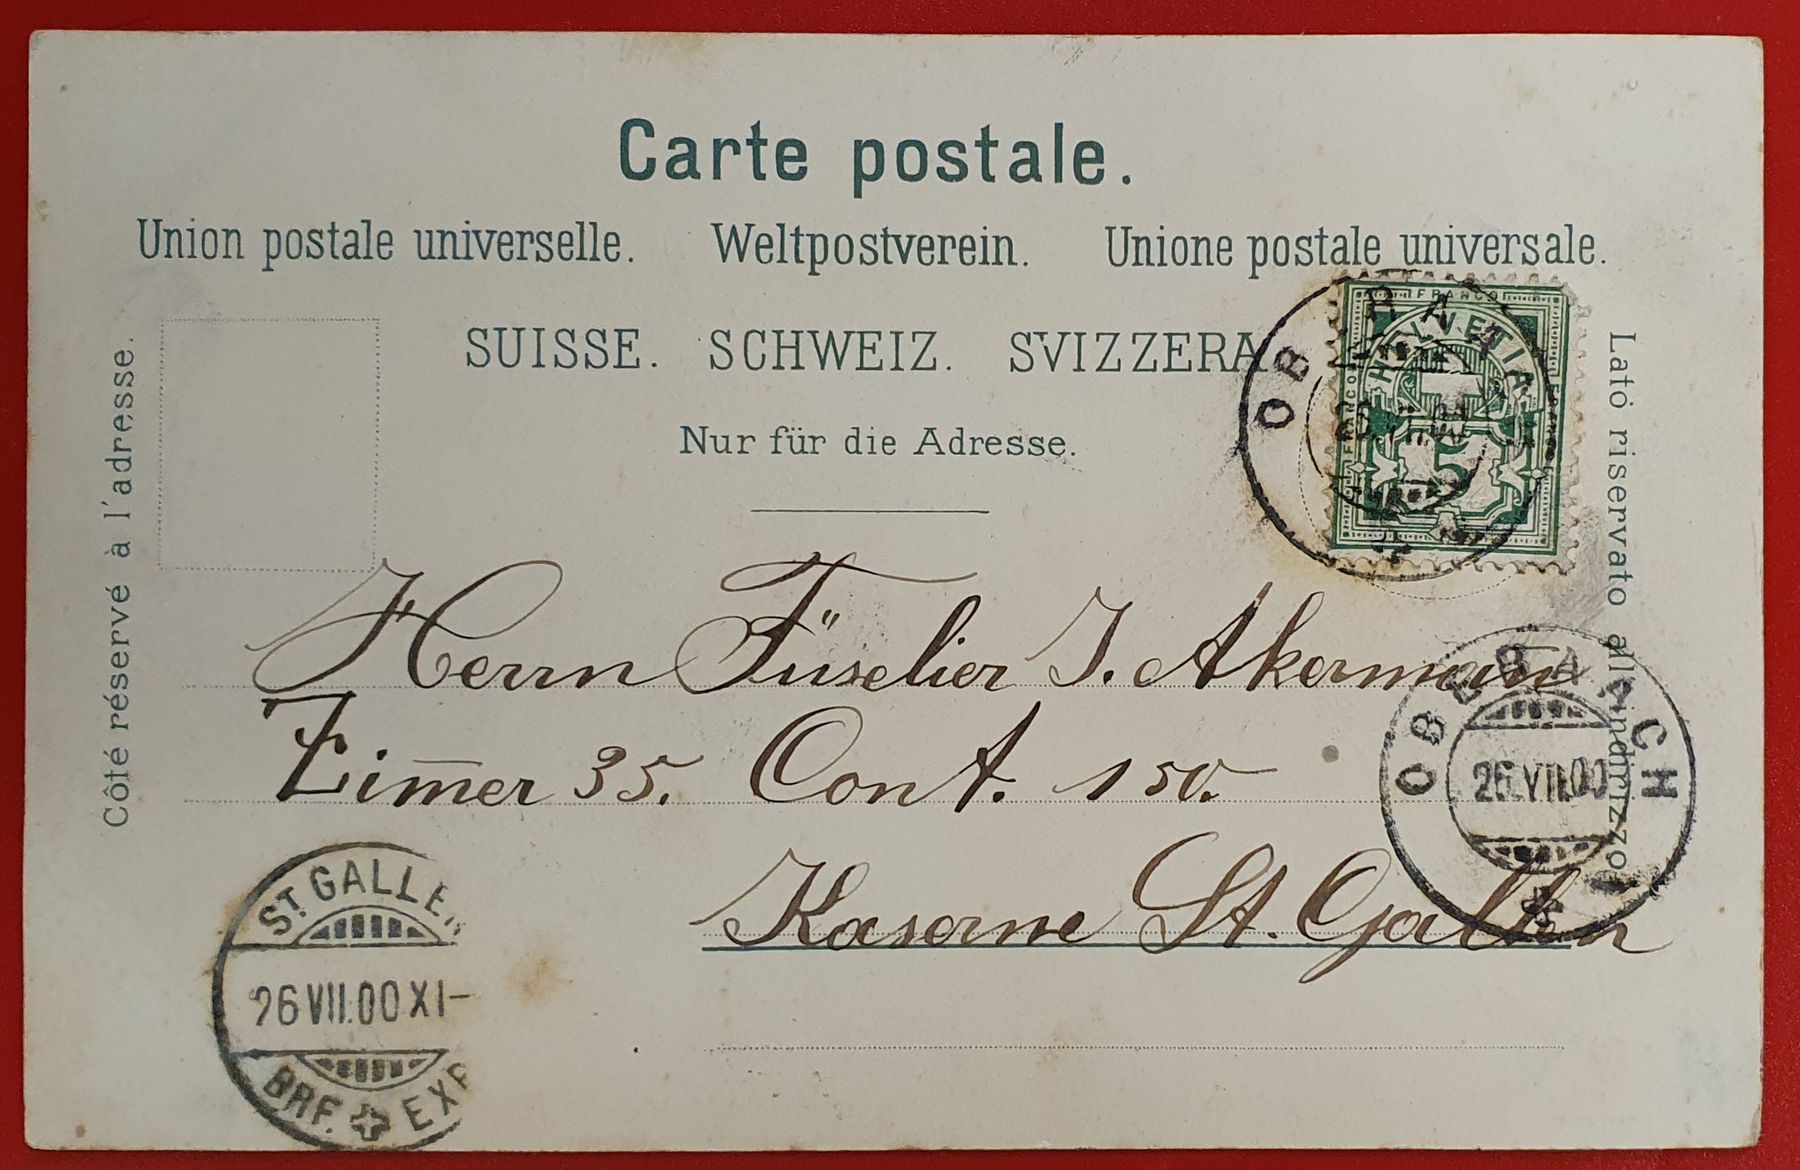 Carte postale.
Union postale universelle. Weltpostverein. Unione postale universale.
SUISSE. SCHWEIZ. SVIZZERA
Nur für die Adresse.
Côté réservé à l'adresse.
Lato riservato all'indirizzo
FRANCO
HELVETIA
FRANCO
5
Herrn Füselier J. Akermann
Zimmer 35. Cont. 150.
Kaserne St. Gallen
OBERAACH
26.VII.00
ST. GALLEN
26 VII.00 XI–
BRF. EXP